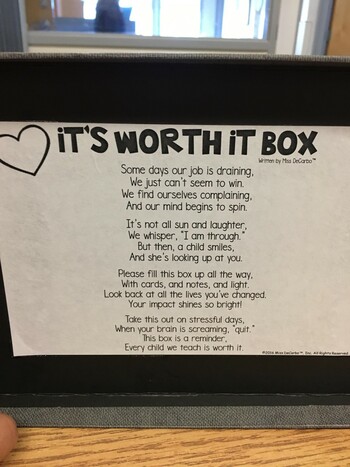 iT'S WORTH iT BOX
Written by Miss DeCarbo™
Some days our job is draining,
We just can't seem to win.
We find ourselves complaining,
And our mind begins to spin.
It's not all sun and laughter,
We whisper, "I am through."
But then, a child smiles,
And she's looking up at you.
Please fill this box up all the way,
With cards, and notes, and light.
Look back at all the lives you've changed.
Your impact shines so bright!
Take this out on stressful days,
When your brain is screaming, "quit."
This box is a reminder,
Every child we teach is worth it.
©2016 Miss DeCarbo™, Inc. All Rights Reserved.